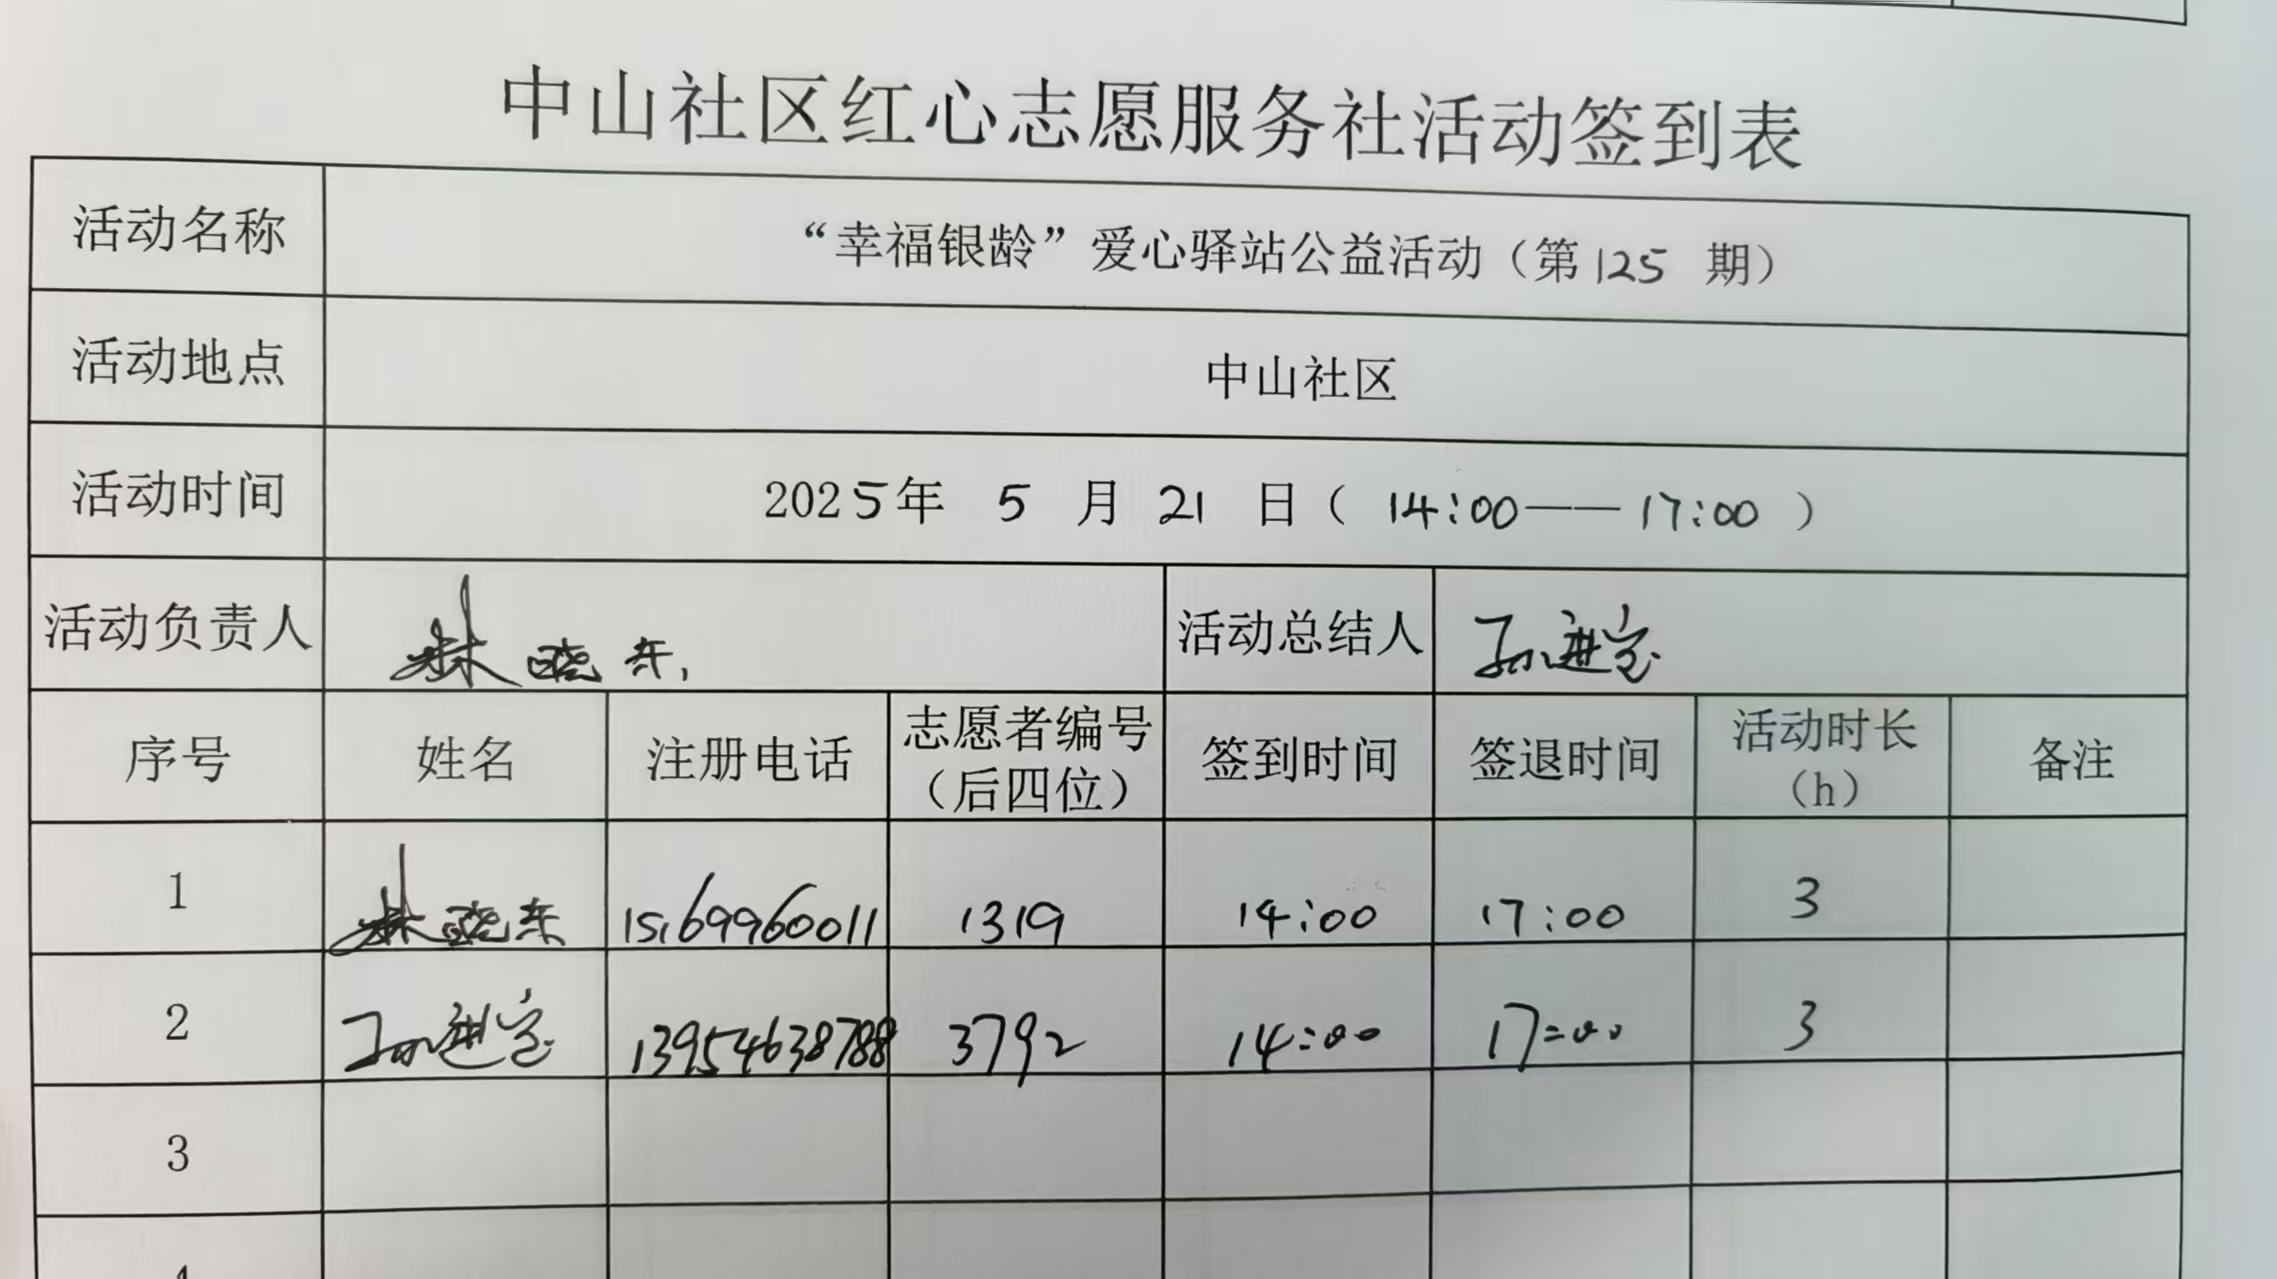 中山社区红心志愿服务社活动签到表
活动名称 “幸福银龄”爱心驿站公益活动（第125期）
活动地点 中山社区
活动时间 2025年5月21日（14:00——17:00）
活动负责人 林晓东 活动总结人 孙进宝
序号 姓名 注册电话 志愿者编号（后四位） 签到时间 签退时间 活动时长（h） 备注
1 林晓东 15169960011 1319 14:00 17:00 3
2 孙进宝 13954638788 3792 14:00 17:00 3
3